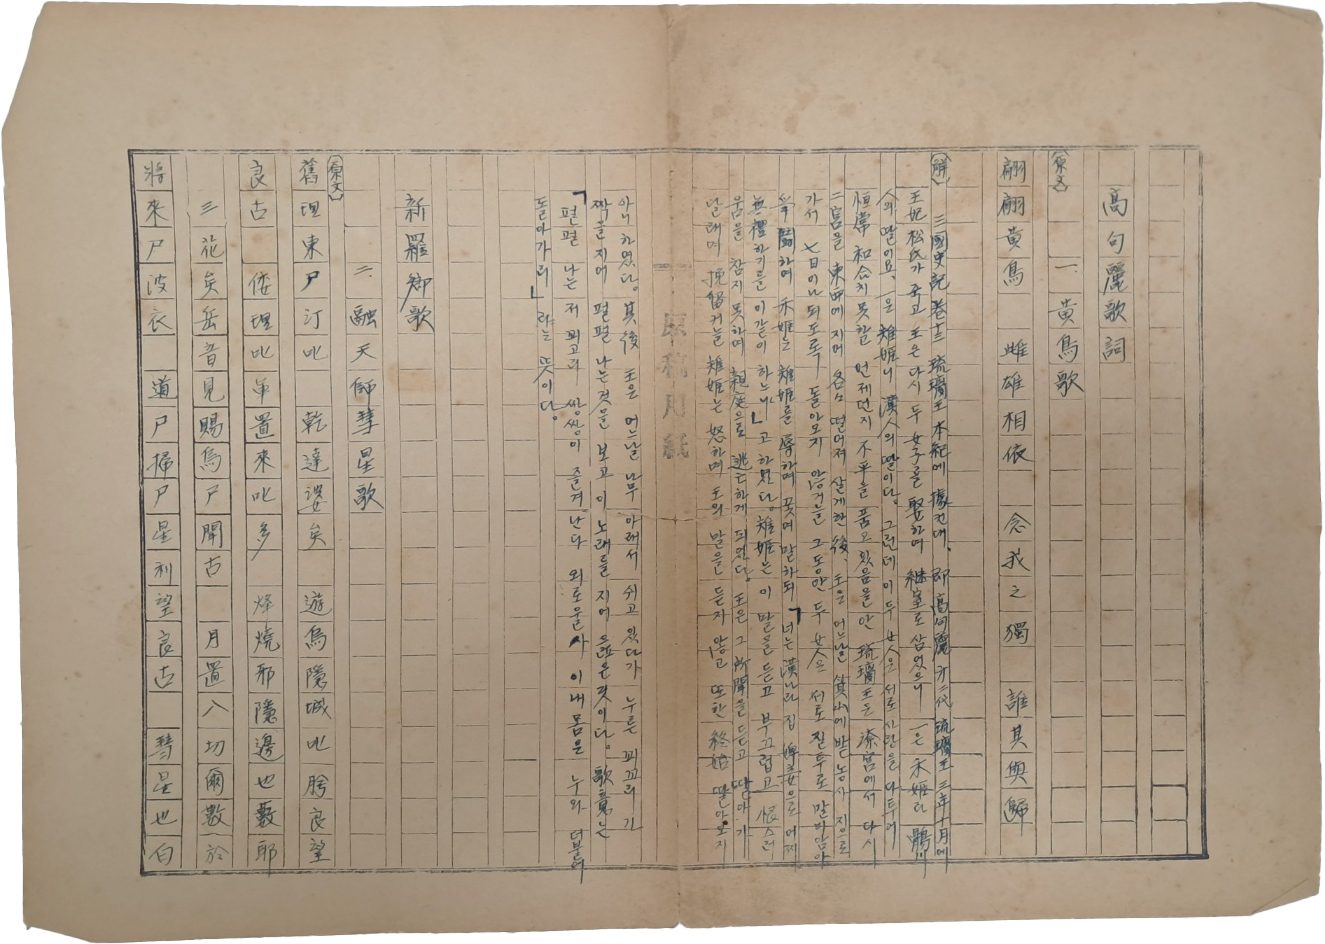 高句麗歌詞
一、黄鳥歌
(原文)
翩翩黄鳥 雌雄相依 念我之獨 誰其與歸
(解) 三國史記 卷十三 琉璃王 本紀에 據컨대、即 高句麗 第二代 琉璃王 三年十月에
王妃 松氏가 죽고 王은 다시 두 女子를 娶하여 継室로 삼었으니 一은 禾姬라 鶻川
人의 딸이요、一은 雉姬니 漢人의 딸이다。그런데 이 두 女人은 서로 사랑을 다투어
恒常 和合치 못할 언제던지 不平을 품고 있음을 안 琉璃王은 凉宮에서 다시
二宮을 東西에 지어 各各 떨어져 살게한 後、王은 어느날 箕山에 받농사 짓으로
가서 七日이나 되도록 돌아오지 않은것을 그동안 두 女人은 서로 질투로 말마암아
争鬪하며 禾姬는 雉姬를 辱하며 꾸짖어 말하되「너는 漢나라 집 婢妾으로 어찌
無禮하기를 이같이 하느냐」고 하였다。雉姬는 이 말을 듣고 부끄럽고 恨스러
움을 참지 못하여 逃亡하게 되었다。王은 그 所聞을 듣고 딸아가
달래며 挽留거늘 雉姬는 怒하며 王의 말을 듣지 않고 또한 終始 딸아오지
아니하였다。其後 王은 어느날 나무 아래서 쉬고 있다가 누른 꾀꼬리가
짝을 지어 펄펄 나는것을 보고 이 노래를 지어 읊은 것이다。歌意는
「펄펄 나는 저 꾀고리 쌍쌍이 즐겨 난다 외로울사 이내몸은 누와 더불어
돌아가리」라는 뜻이다。
原稿用紙
新羅鄉歌
二、融天師彗星歌
(原文)
舊理東尸汀叱 乾達婆矣 遊烏隱城叱肹良望
良古 倭理叱軍置來叱多 烽燒邪隱邊也藪耶
三花矣岳音見賜烏尸聞古 月置八切爾數於
將來尸波衣 道尸掃尸星利望良古 彗星也白